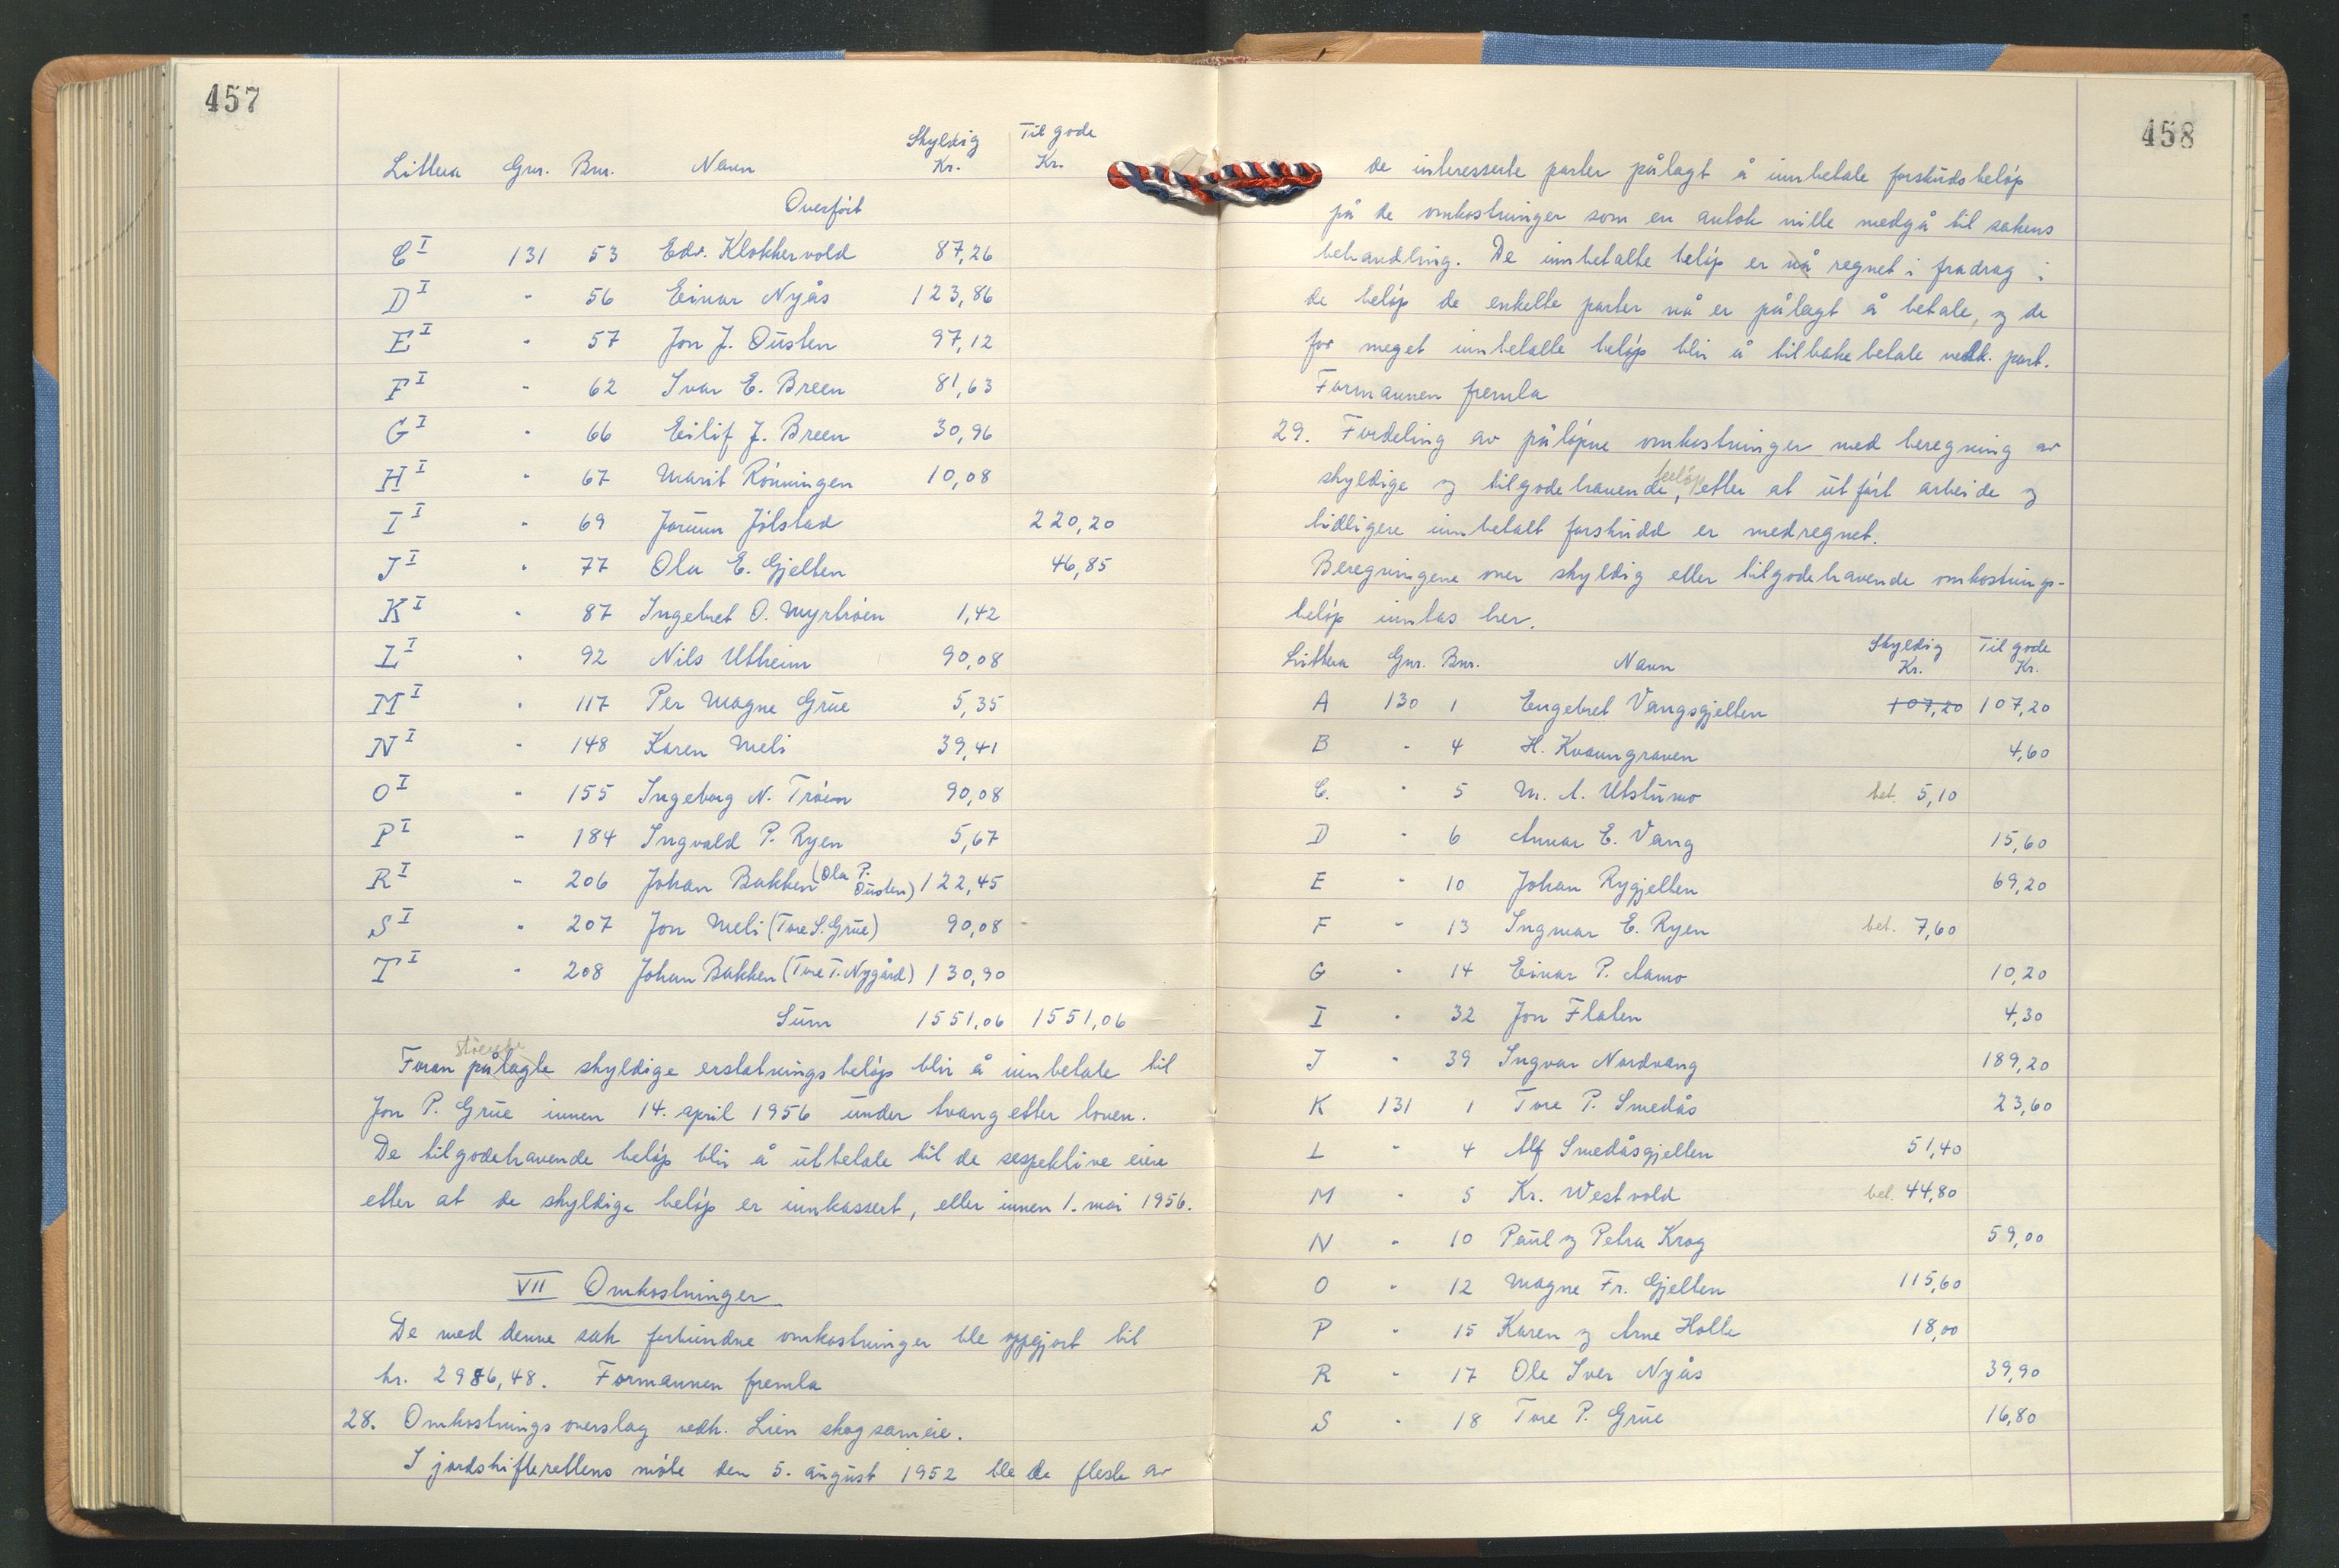 457
Skyldig Til gode
Littera Gnr. Bnr. Navn Kr. Kr.
Overført
C I 131 53 Edv. Klokkervold 87,26
D I - 56 Einar Nyås 123,86
E I - 57 Jon J. Ousten 97,12
F I - 62 Ivar E. Breen 81,63
G I - 66 Eilif J. Breen 30,96
H I - 67 Marit Rønningen 10,08
I I - 69 Jorunn Jølstad 220,20
J I - 77 Ola E. Gjelten 46,85
K I - 87 Ingebret O. Myrtrøen 1,42
L I - 92 Nils Utheim 90,08
M I - 117 Per Magne Grue 5,35
N I - 148 Karen Meli 39,41
O I - 155 Ingeborg N. Trøen 90,08
P I - 184 Ingvald P. Ryen 5,67
R I - 206 Johan Bakken (Ola P. Ousten) 122,45
S I - 207 Jon Meli (Tore S. Grue) 90,08
T I - 208 Johan Bakken (Tore T. Nygård) 130,90
Sum 1551,06 1551,06
Foran pålagte skyldige erstatningsbeløp blir å innbetale til
Jon P. Grue innen 14. april 1956 under tvang etter loven.
De tilgodehavende beløp blir å utbetale til de respektive eiere
etter at de skyldige beløp er innkassert, eller innen 1. mai 1956.
VII Omkostninger
De med denne sak forbundne omkostninger ble oppgjort til
kr. 2986,48. Formannen fremla
28. Omkostningsoverslag vedk. Lien skogsameie.
I jordskifterettens møte den 5. august 1952 ble de fleste av
458
de interesserte parter pålagt å innbetale forskuddsbeløp
på de omkostninger som en antok ville medgå til sakens
behandling. De innbetalte beløp er nå regnet i fradrag i
de beløp de enkelte parter nå er pålagt å betale, og de
for meget innbetalte beløp blir å tilbakebetale vedk. part.
Formannen fremla
29. Fordeling av påløpne omkostninger med beregning av
skyldige og tilgodehavende beløp, etter at utført arbeide og
tidligere innbetalt forskudd er medregnet.
Beregningene over skyldig eller tilgodehavende omkostnings-
beløp inntas her.
Skyldig Til gode
Littera Gnr. Bnr. Navn Kr. Kr.
A 130 1 Engebret Vangsgjelten 107,20 107,20
B - 4 H. Kvanngraven 4,60
C. - 5 M. A. Utstumo bet. 5,10
D - 6 Annar E. Vang 15,60
E - 10 Johan Rygjelten 69,20
F - 13 Ingmar E. Ryen bet. 7,60
G - 14 Einar P. Aamo 10,20
I - 32 Jon Flaten 4,30
J - 39 Ingvar Nordvang 189,20
K 131 1 Tore P. Smedås 23,60
L - 4 Alf Smedåsgjelten 51,40
M - 5 Kr. Westvold bet. 44,80
N - 10 Paul og Petra Krog 59,00
O - 12 Magne Fr. Gjelten 115,60
P - 15 Karen og Arne Holte 18,00
R - 17 Ole Iver Nyås 39,90
S - 18 Tore P. Grue 16,80